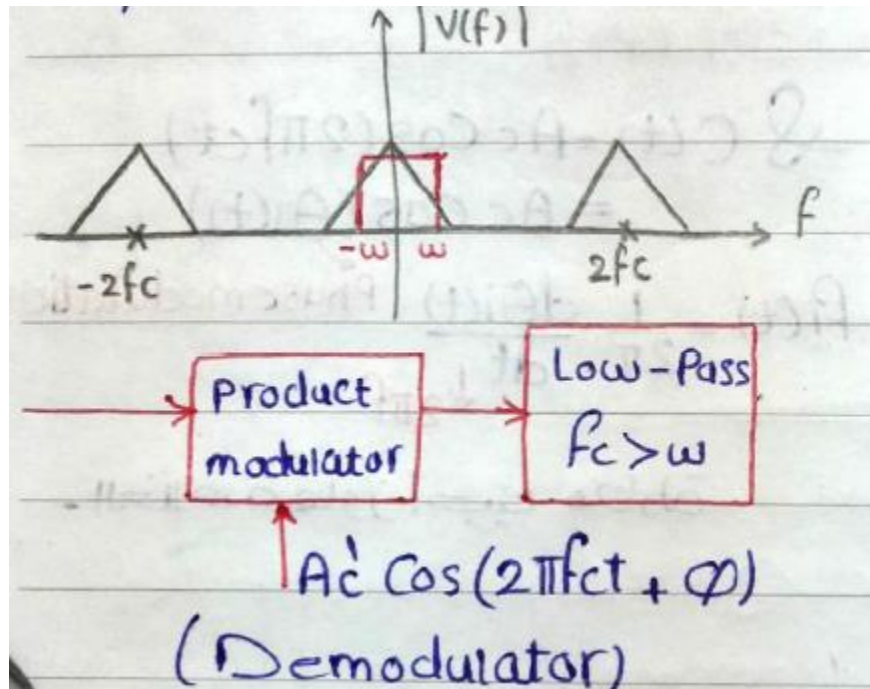 |V(f)|
f
-ω ω
-2fc 2fc
Product
modulator
Low-Pass
fc>ω
Ac' Cos(2πfct + φ)
(Demodulator)